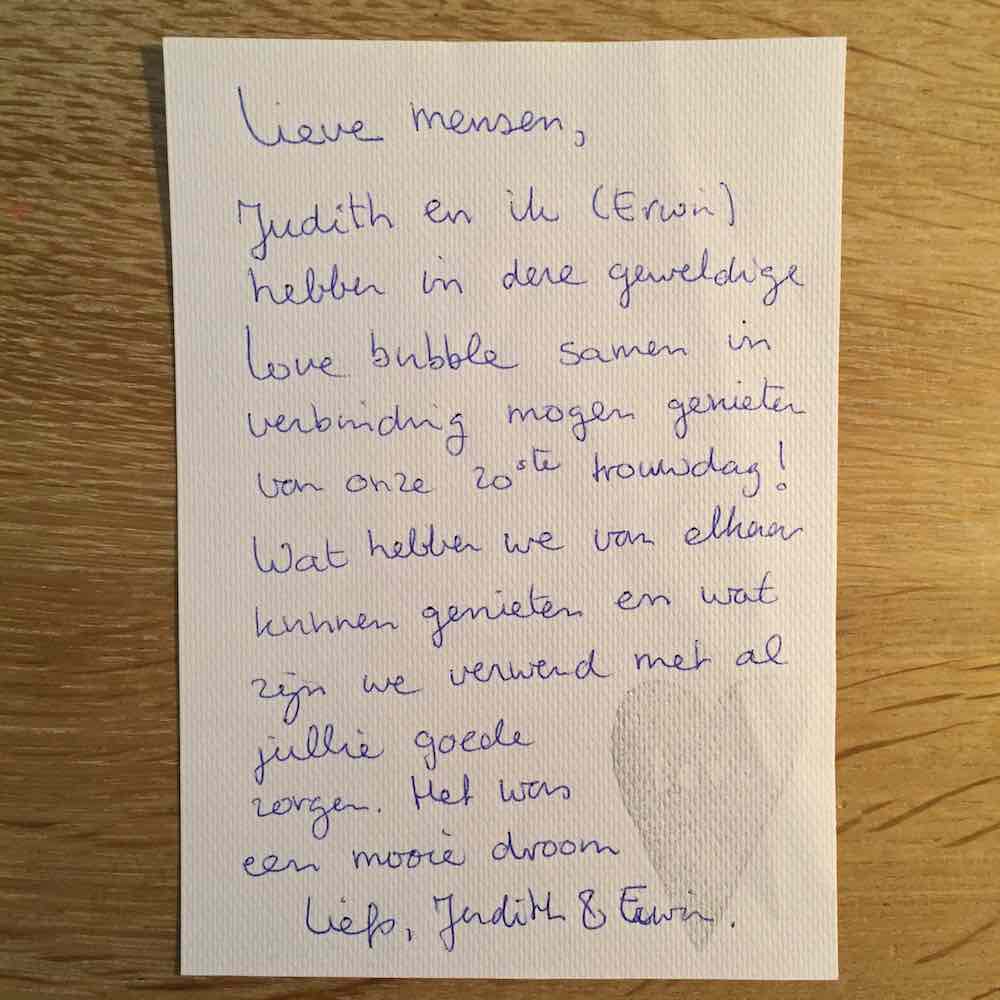 Lieve mensen,
Judith en ik (Erwin)
hebben in deze geweldige
love bubble samen in
verbinding mogen genieten
van onze 20ste trouwdag!
Wat hebben we van elkaar
kunnen genieten en wat
zijn we verwend met al
jullie goede
zorgen. Het was
een mooie droom
Liefs, Judith & Erwin.